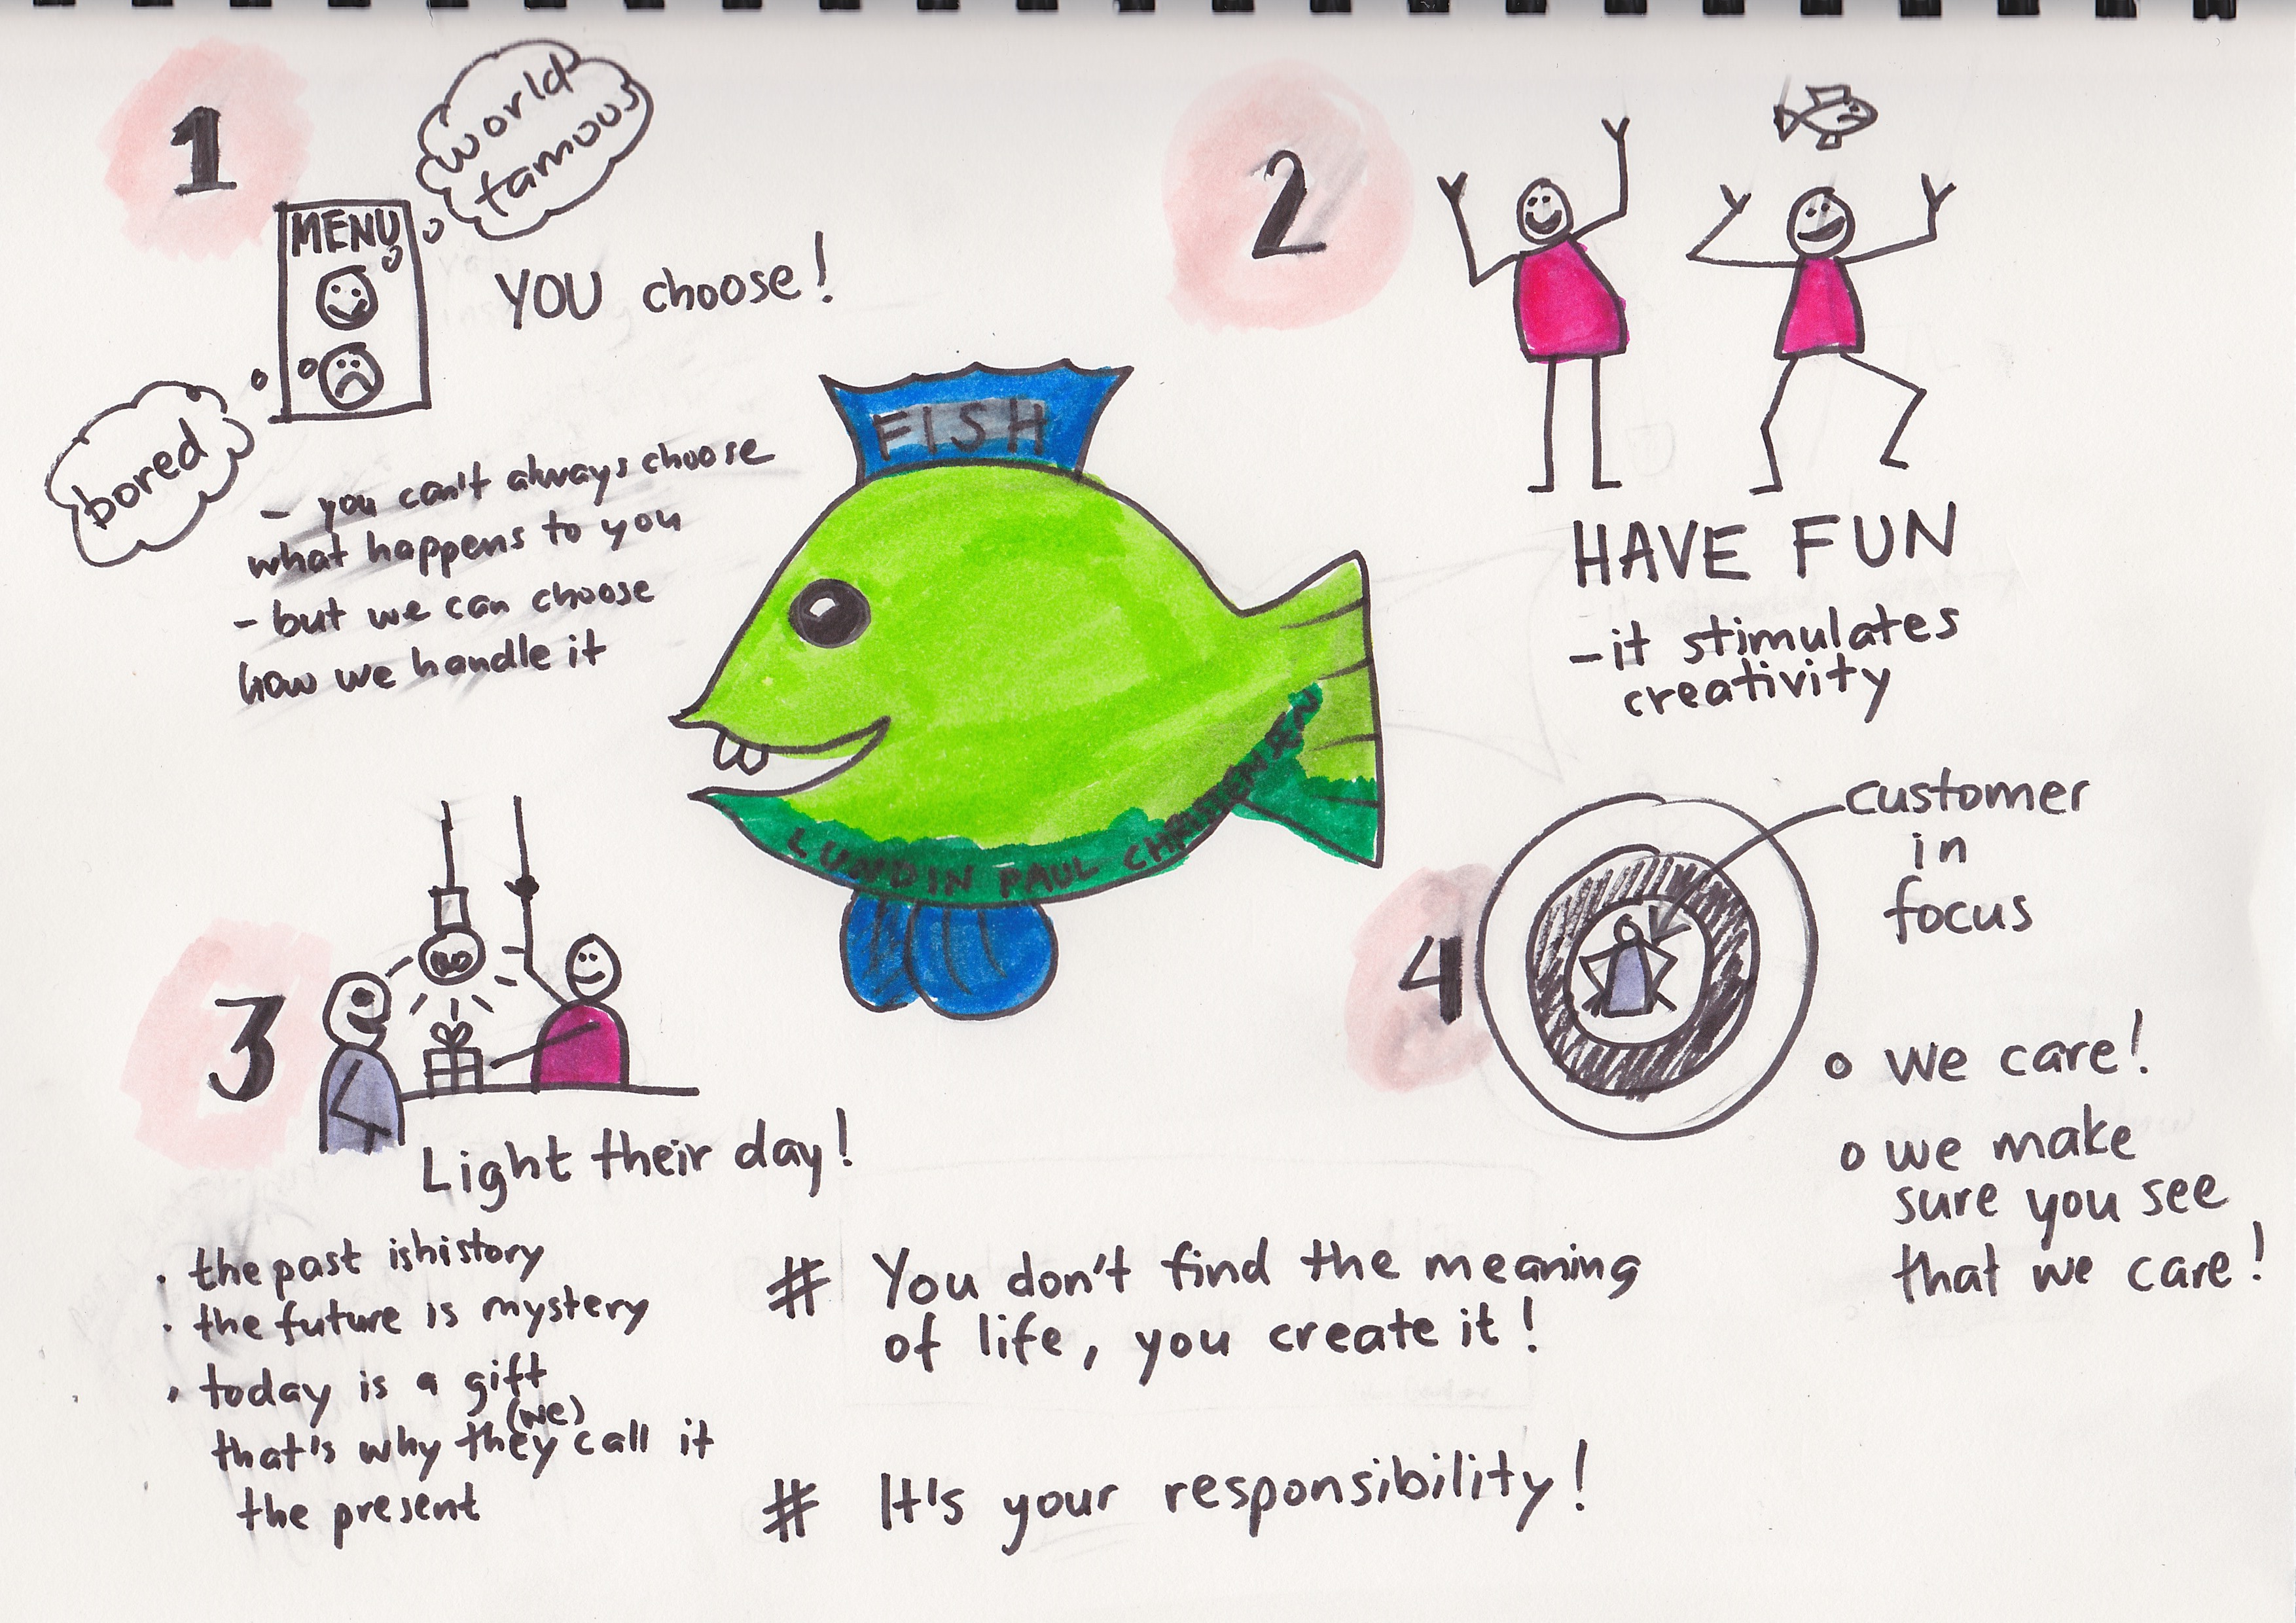 1
world
famous
MENU
YOU choose!
bored
- you can't always choose
what happens to you
- but we can choose
how we handle it
2
HAVE FUN
- it stimulates
creativity
FISH
LUNDIN PAUL CHRISTENSEN
3
Light their day!
• the past is history
• the future is mystery
• today is a gift
(we)
that's why they call it
the present
4
customer
in
focus
o we care!
o we make
sure you see
that we care!
# You don't find the meaning
of life, you create it!
# It's your responsibility!